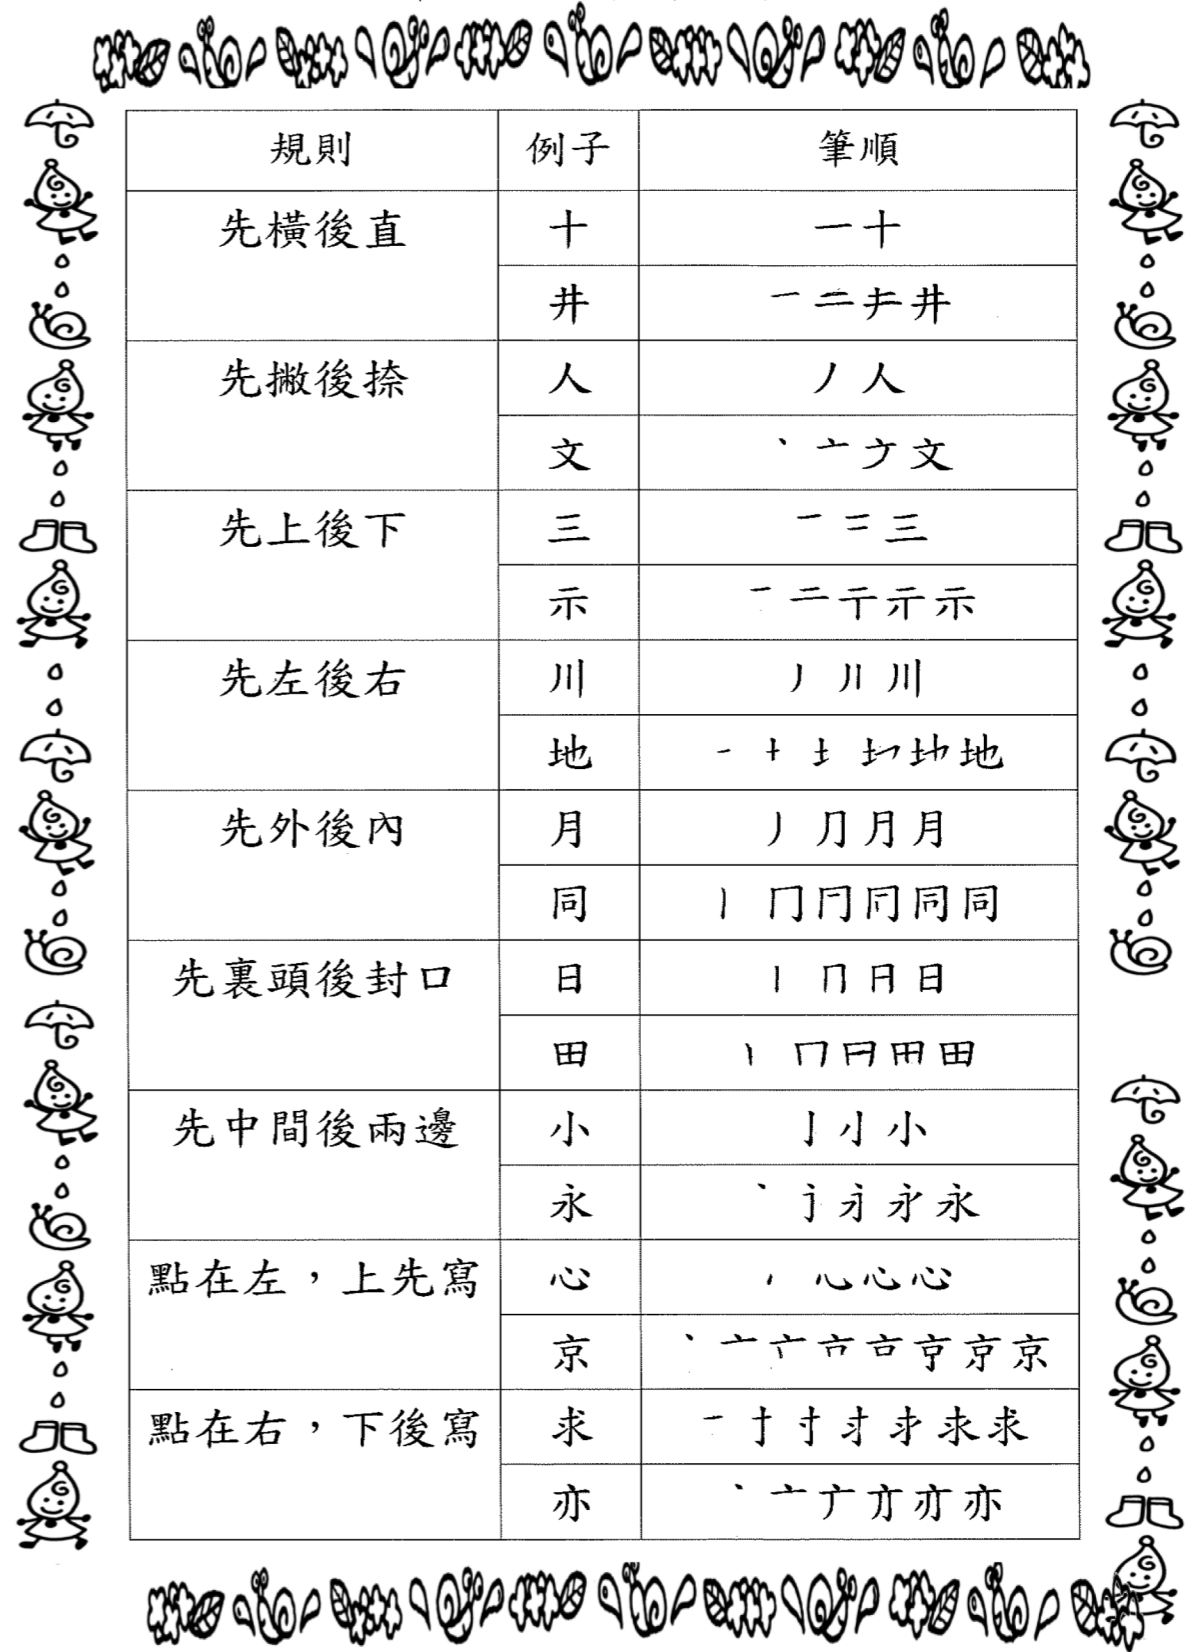 規則 例子 筆順
先橫後直 十 一十
井 一 二 井
先撇後捺 人 丿 人
文 丶 亠 文
先上後下 三 一 二 三
示 一 二 亍 示
先左後右 川 丿 川
地 一 十 地
先外後內 月 丿 ⺆ 月 月
同 丨 冂 同 同
先裏頭後封口 日 丨 冂 日
田 丨 冂 田
先中間後兩邊 小 亅 小
永 丶 永
點在左，上先寫 心 心
京 丶 亠 京
點在右，下後寫 求 一 求
亦 丶 亠 亦